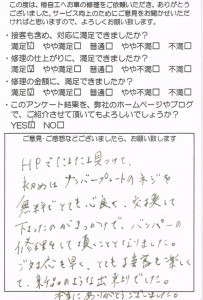 この度は、椿自工へお車の修理をご依頼いただき、ありがとう
ございました。サービス向上のためにご意見をお聞かせいただ
ければと思いますので、よろしくお願い致します。
・接客も含め、対応に満足できましたか?
満足☑ やや満足□ 普通□ やや不満□ 不満□
・修理の仕上がりに、満足できましたか?
満足☑ やや満足□ 普通□ やや不満□ 不満□
・修理の金額に、満足できましたか?
満足☑ やや満足□ 普通□ やや不満□ 不満□
・このアンケート結果を、弊社のホームページやブログ
で、ご紹介させて頂いてもよろしいでしょうか?
YES☑ NO□
ご意見・ご感想などございましたら、お願い致します
HPで見つけて、
初めはナンバープレートのネジを
無料でとても心良く、交換して
下さったのがきっかけで、バンパーの
修理をして頂くことになりました。
ご対応も早く、とても
出来でした。
本当にありがとうございました。